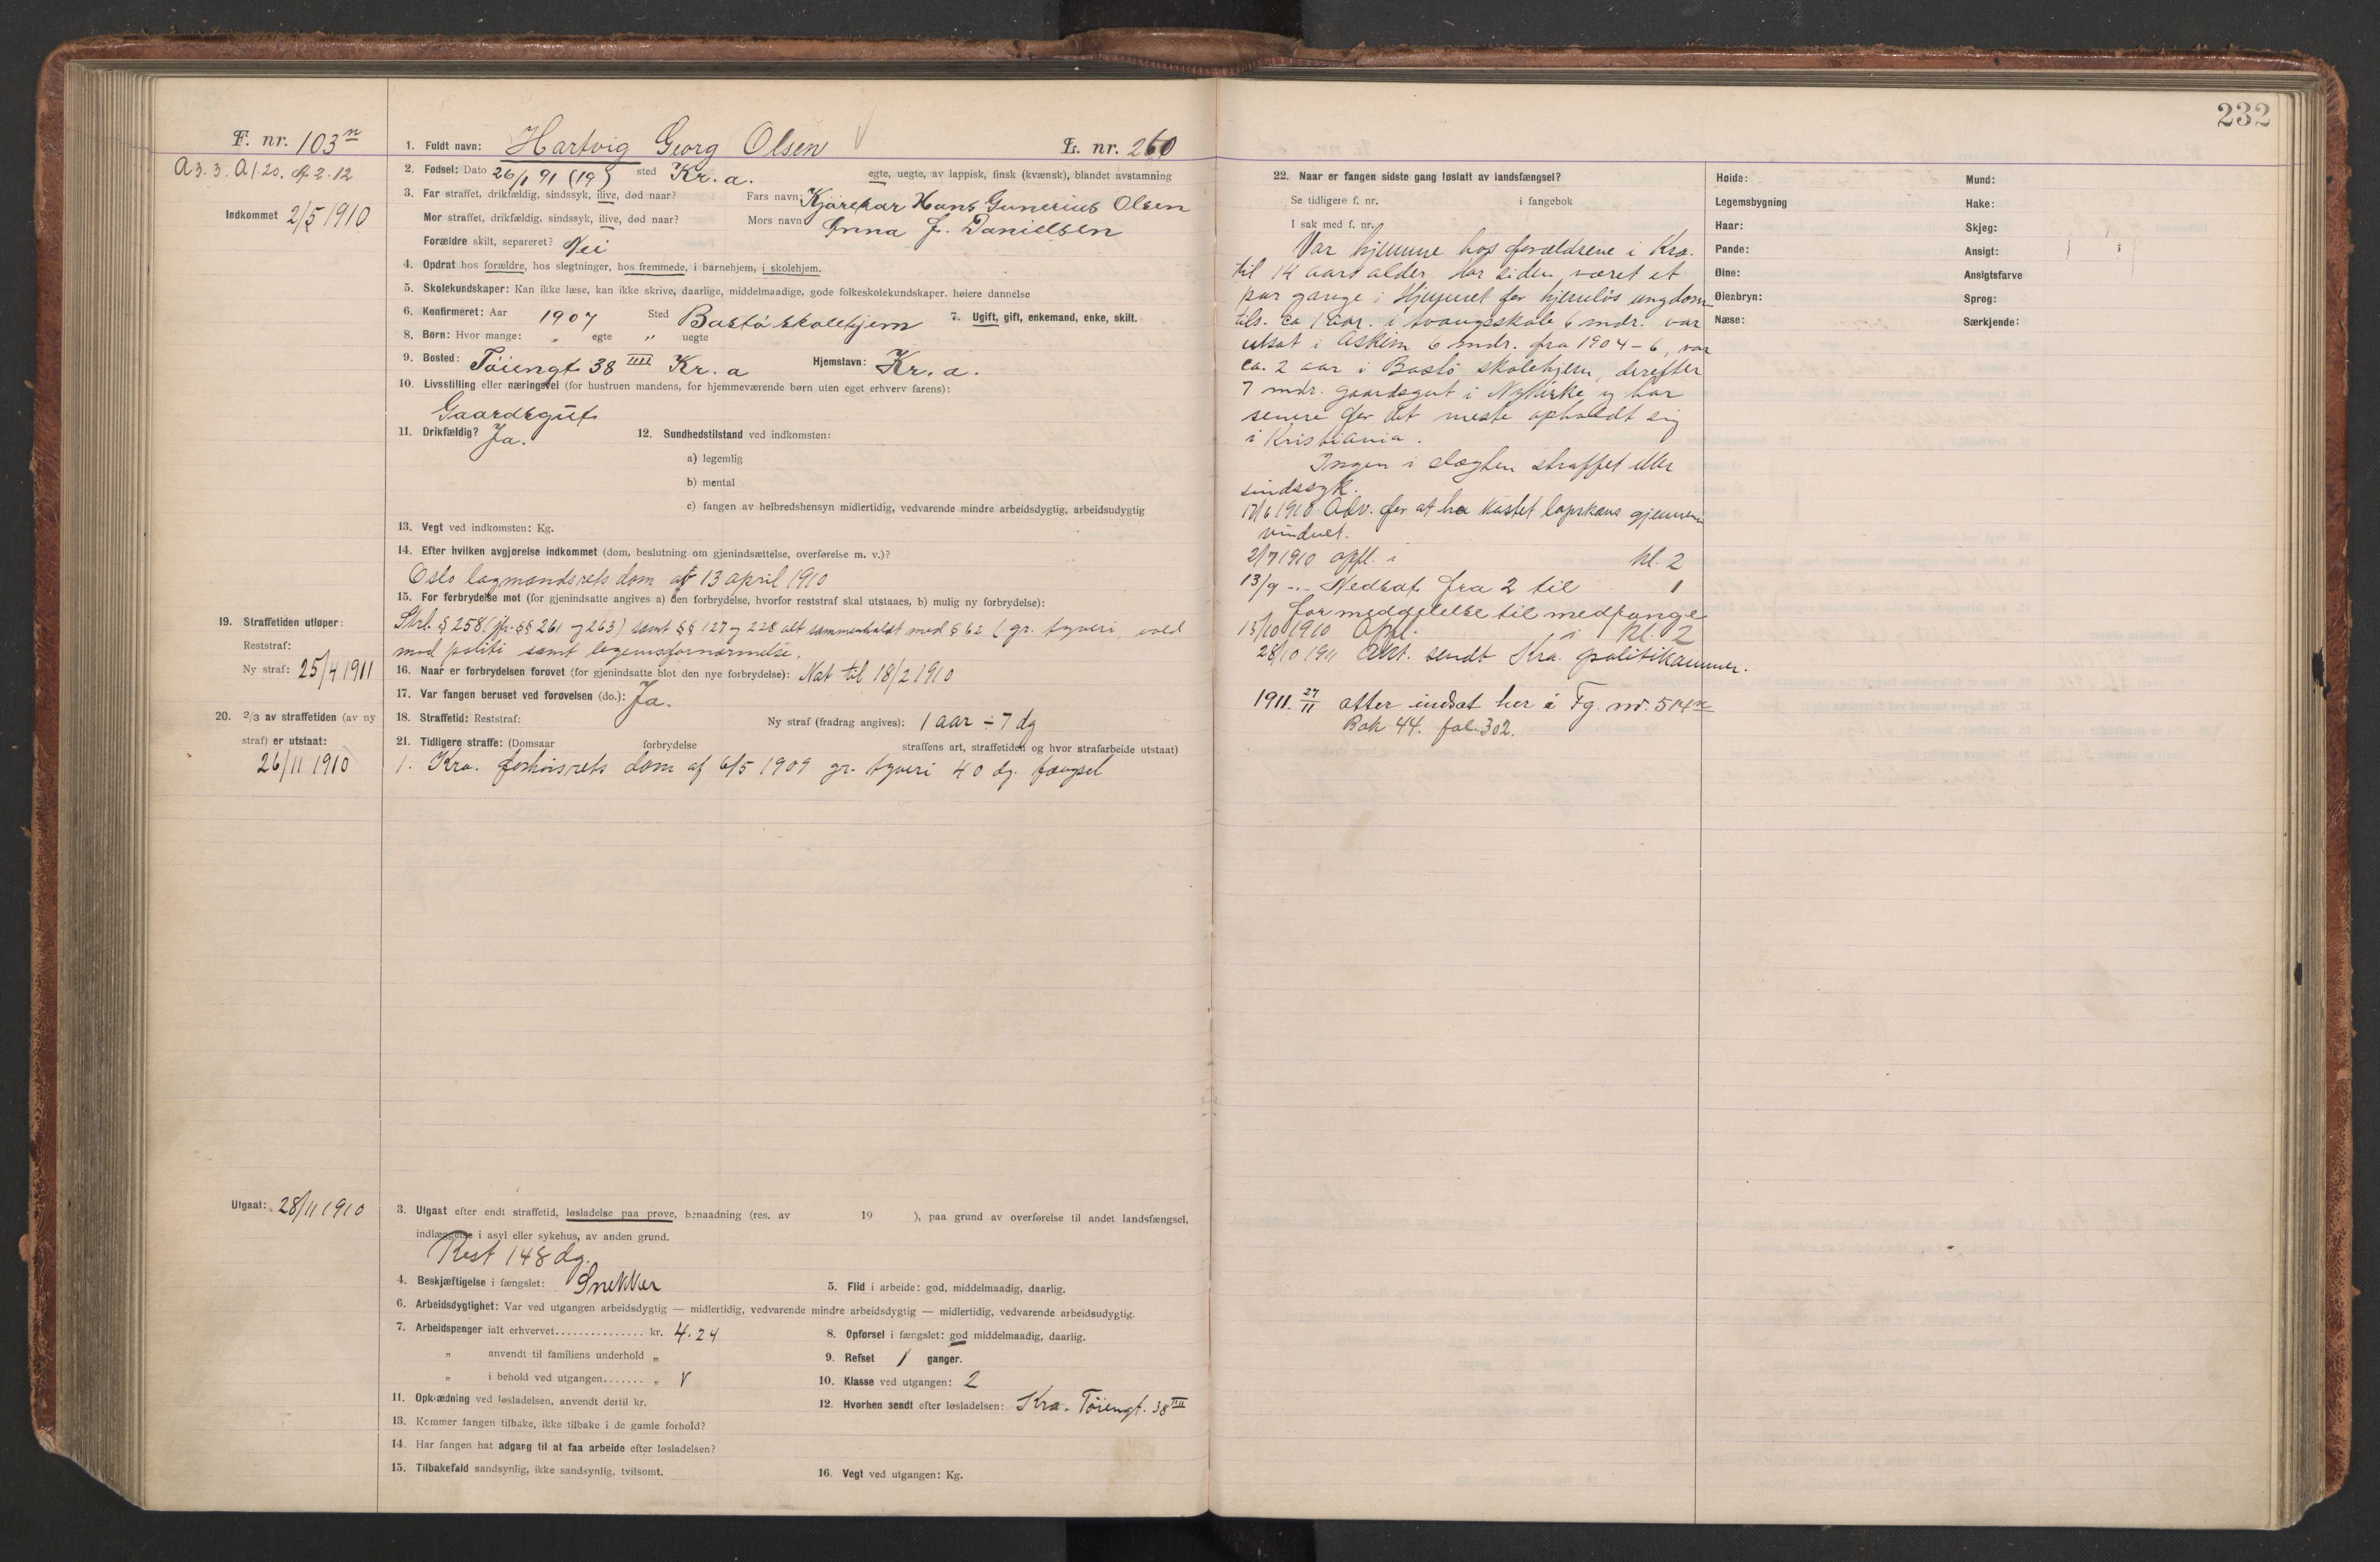 232
F. nr. 103n
A 3. 3. A 1. 20. A 2. 12
Indkommet 2/5 1910
1. Fuldt navn: Hartvig Georg Olsen
L. nr. 260
2. Fødsel: Dato 26/1 91 (19) sted Kr. a. egte, uegte, av lappisk, finsk (kvænsk), blandet avstamning
3. Far straffet, drikfældig, sindssyk, ilive, død naar? Fars navn Kjørekar Hans Gunerius Olsen
Mor straffet, drikfældig, sindssyk, ilive, død naar? Mors navn Anna J. Danielsen
Forældre skilt, separeret? Nei
4. Opdrat hos forældre, hos slegtninger, hos fremmede, i barnehjem, i skolehjem.
5. Skolekundskaper: Kan ikke læse, kan ikke skrive, daarlige, middelmaadige, gode folkeskolekundskaper. høiere dannelse
6. Konfirmeret: Aar 1907 Sted Bastö skolehjem 7. Ugift, gift, enkemand, enke, skilt.
8. Børn: Hvor mange: „ egte „ uegte
9. Bosted: Töiengt 38 IIII Kr. a Hjemstavn: Kr. a.
10. Livsstilling eller næringsvei (for hustruen mandens, for hjemmeværende børn uten eget erhverv farens):
Gaardsgut
11. Drikfældig? Ja. 12. Sundhedstilstand ved indkomsten:
a) legemlig
b) mental
c) fangen av helbredshensyn midlertidig, vedvarende mindre arbeidsdygtig, arbeidsudygtig
13. Vegt ved indkomsten: Kg.
14. Efter hvilken avgjørelse indkommet (dom, beslutning om gjenindsættelse, overførelse m. v.)?
Oslo lagmandsrets dom af 13 april 1910
15. For forbrydelse mot (for gjenindsatte angives a) den forbrydelse, hvorfor reststraf skal utstaaes, b) mulig ny forbrydelse):
Strl. § 258 (jfr. §§ 261 og 263) samt §§ 127 og 228 alt sammenholdt med § 62 (gr. tyveri, vold
mod politi samt legemsfornærmelse.
16. Naar er forbrydelsen forøvet (for gjenindsatte blot den nye forbrydelse): Nat til 18/2 1910
17. Var fangen beruset ved forøvelsen (do.): Ja.
18. Straffetid: Reststraf: Ny straf (fradrag angives): 1 aar ÷ 7 dg
19. Straffetiden utløper:
Reststraf:
Ny straf: 25/4 1911
20. 2/3 av straffetiden (av ny
straf) er utstaat:
26/11 1910
21. Tidligere straffe: (Domsaar forbrydelse straffens art, straffetiden og hvor strafarbeide utstaat)
1. Kra. forhörsrets dom af 6/5 1909 gr. tyveri 40 dg. fængsel
Utgaat: 28/11 1910
3. Utgaat efter endt straffetid, løsladelse paa prøve, benaadning (res. av 19 ), paa grund av overførelse til andet landsfængsel,
indlæggelse i asyl eller sykehus, av anden grund.
Rest 148 dg.
4. Beskjæftigelse i fængslet: Snekker 5. Flid i arbeide: god, middelmaadig, daarlig.
6. Arbeidsdygtighet: Var ved utgangen arbeidsdygtig — midlertidig, vedvarende mindre arbeidsdygtig — midlertidig, vedvarende arbeidsudygtig.
7. Arbeidspenger ialt erhvervet............... kr. 4.24 8. Opførsel i fængslet: god middelmaadig, daarlig.
„ anvendt til familiens underhold „ 9. Refset 1 ganger.
„ i behold ved utgangen....... „ 10. Klasse ved utgangen: 2
11. Opklædning ved løsladelsen, anvendt dertil kr. 12. Hvorhen sendt efter løsladelsen: Kra. Töiengt. 38 IIII
13. Kommer fangen tilbake, ikke tilbake i de gamle forhold?
14. Har fangen hat adgang til at faa arbeide efter løsladelsen?
15. Tilbakefald sandsynlig, ikke sandsynlig, tvilsomt. 16. Vegt ved utgangen: Kg.
22. Naar er fangen sidste gang løslatt av landsfængsel?
Se tidligere f. nr. i fangebok
I sak med f. nr.
Var hjemme hos forældrene i Kra.
til 14 aars alder. Har siden været et
par gange i Hjemmet for hjemlös ungdom
tils. ca 1 aar. i tvangsskole 6 mdr. var
utsat i Askim 6 mdr. fra 1904-6, var
ca. 2 aar i Bastö skolehjem, derefter
7 mdr. gaardsgut i Nykirke og har
senere for det meste opholdt sig
i Kristiania.
Ingen i slægten straffet eller
sindssyk.
17/6 1910 Adv. for at ha kastet lapskaus gjennem
vinduet.
2/7 1910 opfl. i kl. 2
13/9 -„- Nedsat fra 2 til 1
for meddelelse til medfange
15/10 1910 Opfl. i kl. 2
28/10 1911 Akt. sendt Kra. politikammer.
1911. 27/11 atter indsat her i Fg. nr. 514n
Bok 44. fol. 302.
Høide:
Legemsbygning
Haar:
Pande:
Øine:
Øienbryn:
Næse:
Mund:
Hake:
Skjeg:
Ansigt:
Ansigtsfarve
Sprog:
Særkjende: